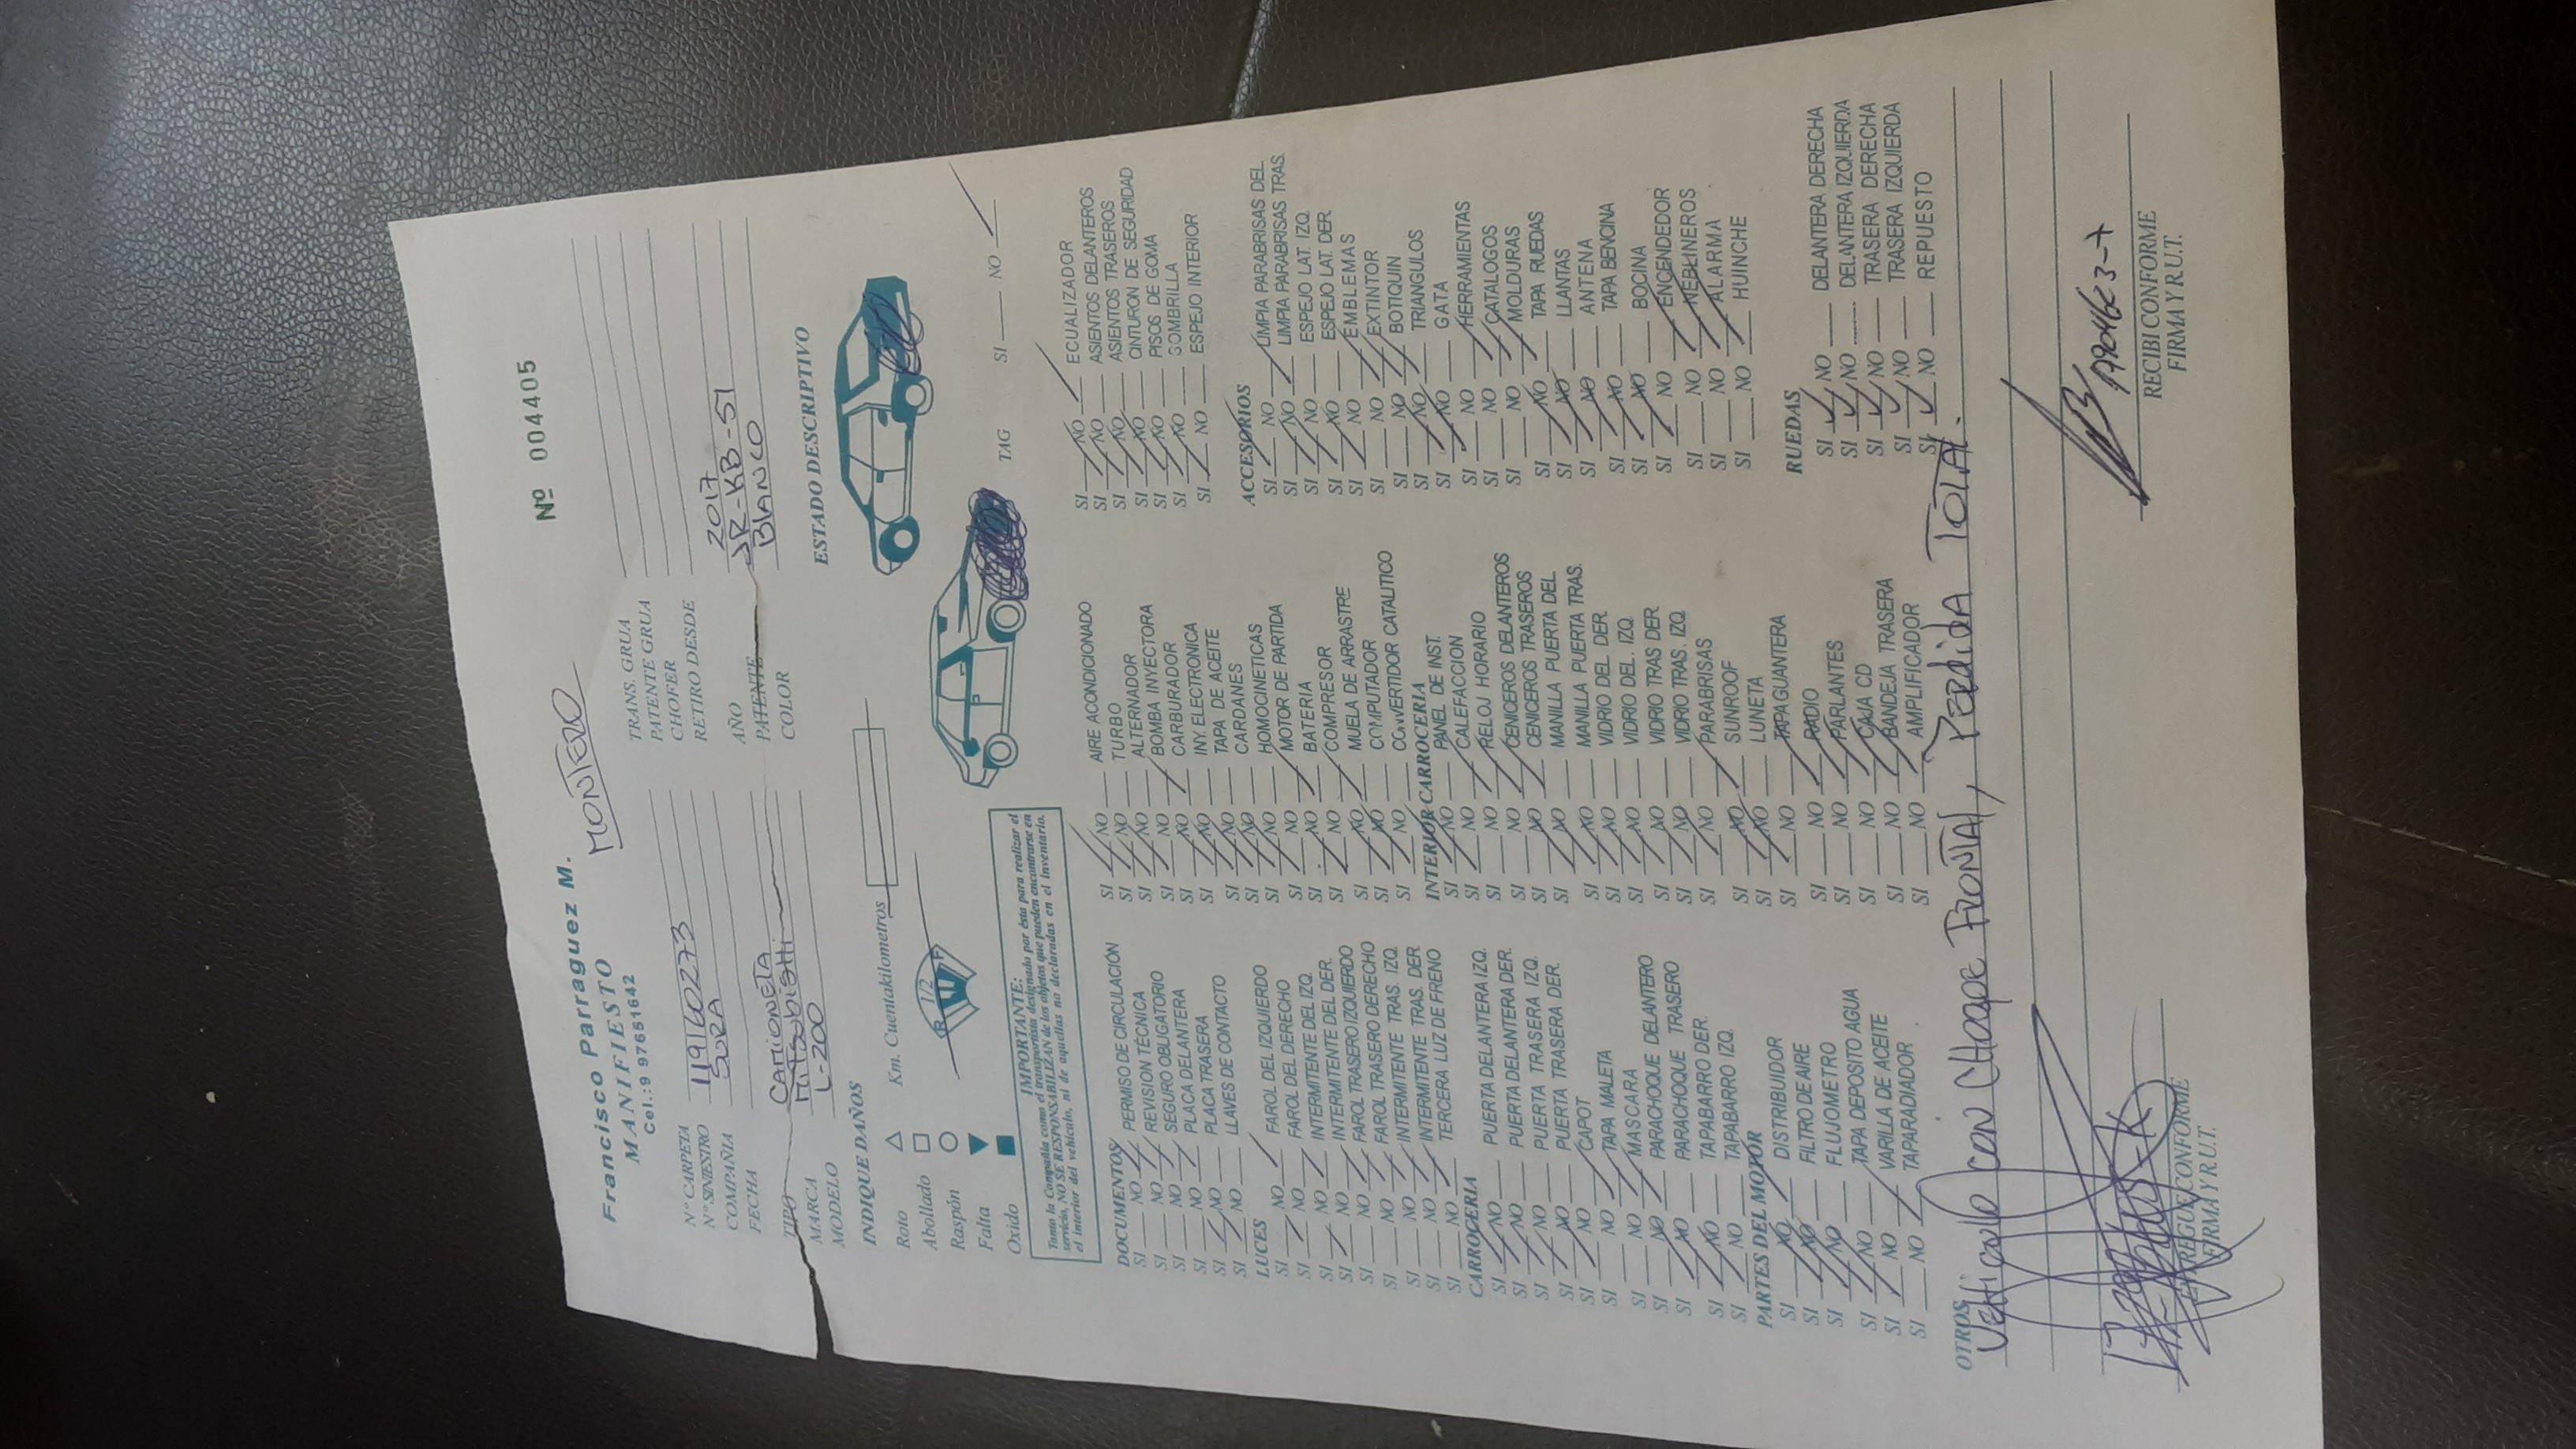 Francisco Parraguez M.
MANIFIESTO
Cel.:9 97651642
Nº 004405
MONTERO
Nº CARPETA
Nº SINIESTRO 119160273
COMPAÑIA SURA
FECHA
TIPO CAMIONETA
MARCA Mitsubishi
MODELO L-200
TRANS. GRUA
PATENTE GRUA
CHOFER
RETIRO DESDE
AÑO 2017
PATENTE JR-KB-51
COLOR BLANCO
INDIQUE DAÑOS
Roto
Abollado
Raspón
Falta
Oxido
Km. Cuentakilometros
R 1/2 F
ESTADO DESCRIPTIVO
IMPORTANTE:
Tanto la Compañía como el transportista designado por ésta para realizar el
servicio, NO SE RESPONSABILIZAN de los objetos que pueden encontrarse en
el interior del vehículo, ni de aquellas no declaradas en el inventario.
TAG SI NO
DOCUMENTOS
SI NO PERMISO DE CIRCULACIÓN
SI NO REVISION TÉCNICA
SI NO SEGURO OBLIGATORIO
SI NO PLACA DELANTERA
SI NO PLACA TRASERA
SI NO LLAVES DE CONTACTO
LUCES
SI NO FAROL DEL IZQUIERDO
SI NO FAROL DEL DERECHO
SI NO INTERMITENTE DEL IZQ.
SI NO INTERMITENTE DEL DER.
SI NO FAROL TRASERO IZQUIERDO
SI NO FAROL TRASERO DERECHO
SI NO INTERMITENTE TRAS. IZQ.
SI NO INTERMITENTE TRAS. DER
SI NO TERCERA LUZ DE FRENO
CARROCERIA
SI NO PUERTA DELANTERA IZQ.
SI NO PUERTA DELANTERA DER.
SI NO PUERTA TRASERA IZQ.
SI NO PUERTA TRASERA DER.
SI NO CAPOT
SI NO TAPA MALETA
SI NO MASCARA
SI NO PARACHOQUE DELANTERO
SI NO PARACHOQUE TRASERO
SI NO TAPABARRO DER.
SI NO TAPABARRO IZQ.
PARTES DEL MOTOR
SI NO DISTRIBUIDOR
SI NO FILTRO DE AIRE
SI NO FLUJOMETRO
SI NO TAPA DEPOSITO AGUA
SI NO VARILLA DE ACEITE
SI NO TAPARADIADOR
SI NO AIRE ACONDICIONADO
SI NO TURBO
SI NO ALTERNADOR
SI NO BOMBA INYECTORA
SI NO CARBURADOR
SI NO INY. ELECTRONICA
SI NO TAPA DE ACEITE
SI NO CARDANES
SI NO HOMOCINETICAS
SI NO MOTOR DE PARTIDA
SI NO BATERIA
SI NO COMPRESOR
SI NO MUELA DE ARRASTRE
SI NO COMPUTADOR
SI NO CONVERTIDOR CATALITICO
INTERIOR CARROCERIA
SI NO PANEL DE INST.
SI NO CALEFACCION
SI NO RELOJ HORARIO
SI NO CENICEROS DELANTEROS
SI NO CENICEROS TRASEROS
SI NO MANILLA PUERTA DEL
SI NO MANILLA PUERTA TRAS.
SI NO VIDRIO DEL. DER.
SI NO VIDRIO DEL. IZQ.
SI NO VIDRIO TRAS DER.
SI NO VIDRIO TRAS. IZQ.
SI NO PARABRISAS
SI NO SUNROOF
SI NO LUNETA
SI NO TAPAGUANTERA
SI NO RADIO
SI NO PARLANTES
SI NO CAJA CD
SI NO BANDEJA TRASERA
SI NO AMPLIFICADOR
SI NO ECUALIZADOR
SI NO ASIENTOS DELANTEROS
SI NO ASIENTOS TRASEROS
SI NO CINTURON DE SEGURIDAD
SI NO PISOS DE GOMA
SI NO SOMBRILLA
SI NO ESPEJO INTERIOR
ACCESORIOS
SI NO LIMPIA PARABRISAS DEL
SI NO LIMPIA PARABRISAS TRAS.
SI NO ESPEJO LAT. IZQ.
SI NO ESPEJO LAT. DER.
SI NO EMBLEMAS
SI NO EXTINTOR
SI NO BOTIQUIN
SI NO TRIANGULOS
SI NO GATA
SI NO HERRAMIENTAS
SI NO CATALOGOS
SI NO MOLDURAS
SI NO TAPA RUEDAS
SI NO LLANTAS
SI NO ANTENA
SI NO TAPA BENCINA
SI NO BOCINA
SI NO ENCENDEDOR
SI NO NEBLINEROS
SI NO ALARMA
SI NO HUINCHE
RUEDAS
SI NO DELANTERA DERECHA
SI NO DELANTERA IZQUIERDA
SI NO TRASERA DERECHA
SI NO TRASERA IZQUIERDA
SI NO REPUESTO
OTROS
Vehiculo con Choque Frontal, Perdida Total.
ENTREGUE CONFORME
FIRMA Y R.U.T.
RECIBI CONFORME
FIRMA Y R.U.T.